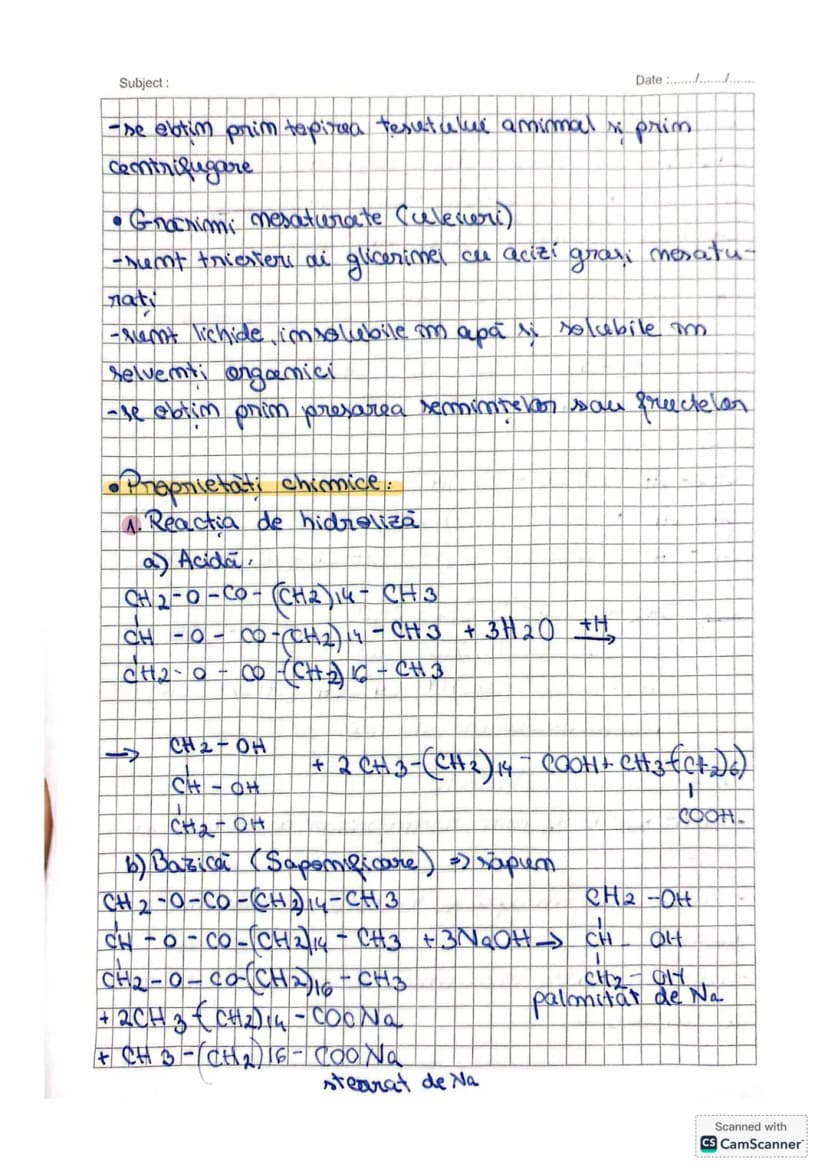 Subject :
Date :......./......./.......
-se obtin prin topirea tesutului animal și prin
centrifugare
• Grăsimi nesaturate (uleiuri)
-sunt triesteri ai glicerinei cu acizi grași nesatu-
rați
-sunt lichide, insolubile în apă și solubile în
solvenți organici
-se obțin prin presarea semințelor sau fructelor
• Proprietăți chimice:
1. Reacția de hidroliză
a) Acidă.
CH2-O-CO-(CH2)14-CH3
CH -O- CO-(CH2)14-CH3 + 3H2O +H→
CH2-O-CO-(CH2)16-CH3
→ CH2-OH
+ 2CH3-(CH2)14-COOH+CH3-(CH2)16)
CH-OH
COOH.
CH2-OH
b) Bazică (Saponificare) => săpun
CH2-O-CO-(CH2)14-CH3 CH2-OH
CH-O-CO-(CH2)14-CH3 +3NaOH→ CH-OH
CH2-O-CO-(CH2)16-CH3 CH2-OH
+ 2CH3-(CH2)14-COONa palmitat de Na
+ CH3-(CH2)16-COONa
stearat de Na
Scanned with
CS CamScanner